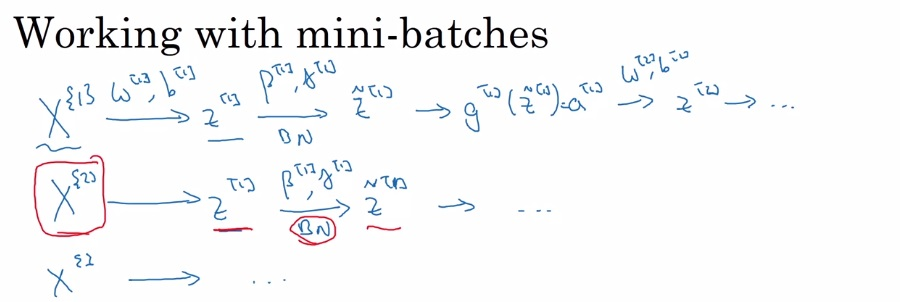 Working with mini-batches
X^{1} w^[1], b^[1] → z^[1] β^[1], γ^[1] → BN z̃^[1] → g^[1](z̃^[1]) = a^[1] w^[2], b^[2] → z^[2] → ...
X^{2} → z^[1] β^[1], γ^[1] → BN z̃^[1] → ...
X^{ → ...